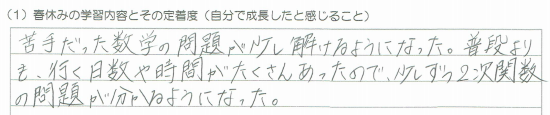 (1) 春休みの学習内容とその定着度（自分で成長したと感じること）
苦手だった数学の問題が少し解けるようになった。普段より
も、行く日数や時間がたくさんあったので、少しずつ2次関数
の問題が分かるようになった。